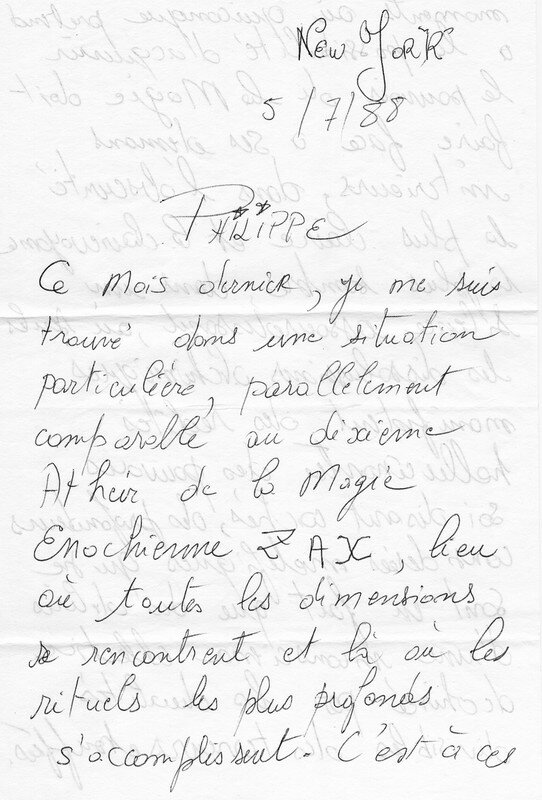 New York
5/7/88
PHILIPPE
Ce mois dernier, je me suis
trouvé dans une situation
particulière, parallèlement
comparable au dixième
Atheir de la Magie
Enochienne ZAX, lieu
où toutes les dimensions
se rencontrent et là où les
rituels les plus profonds
s'accomplissent. C'est à ces